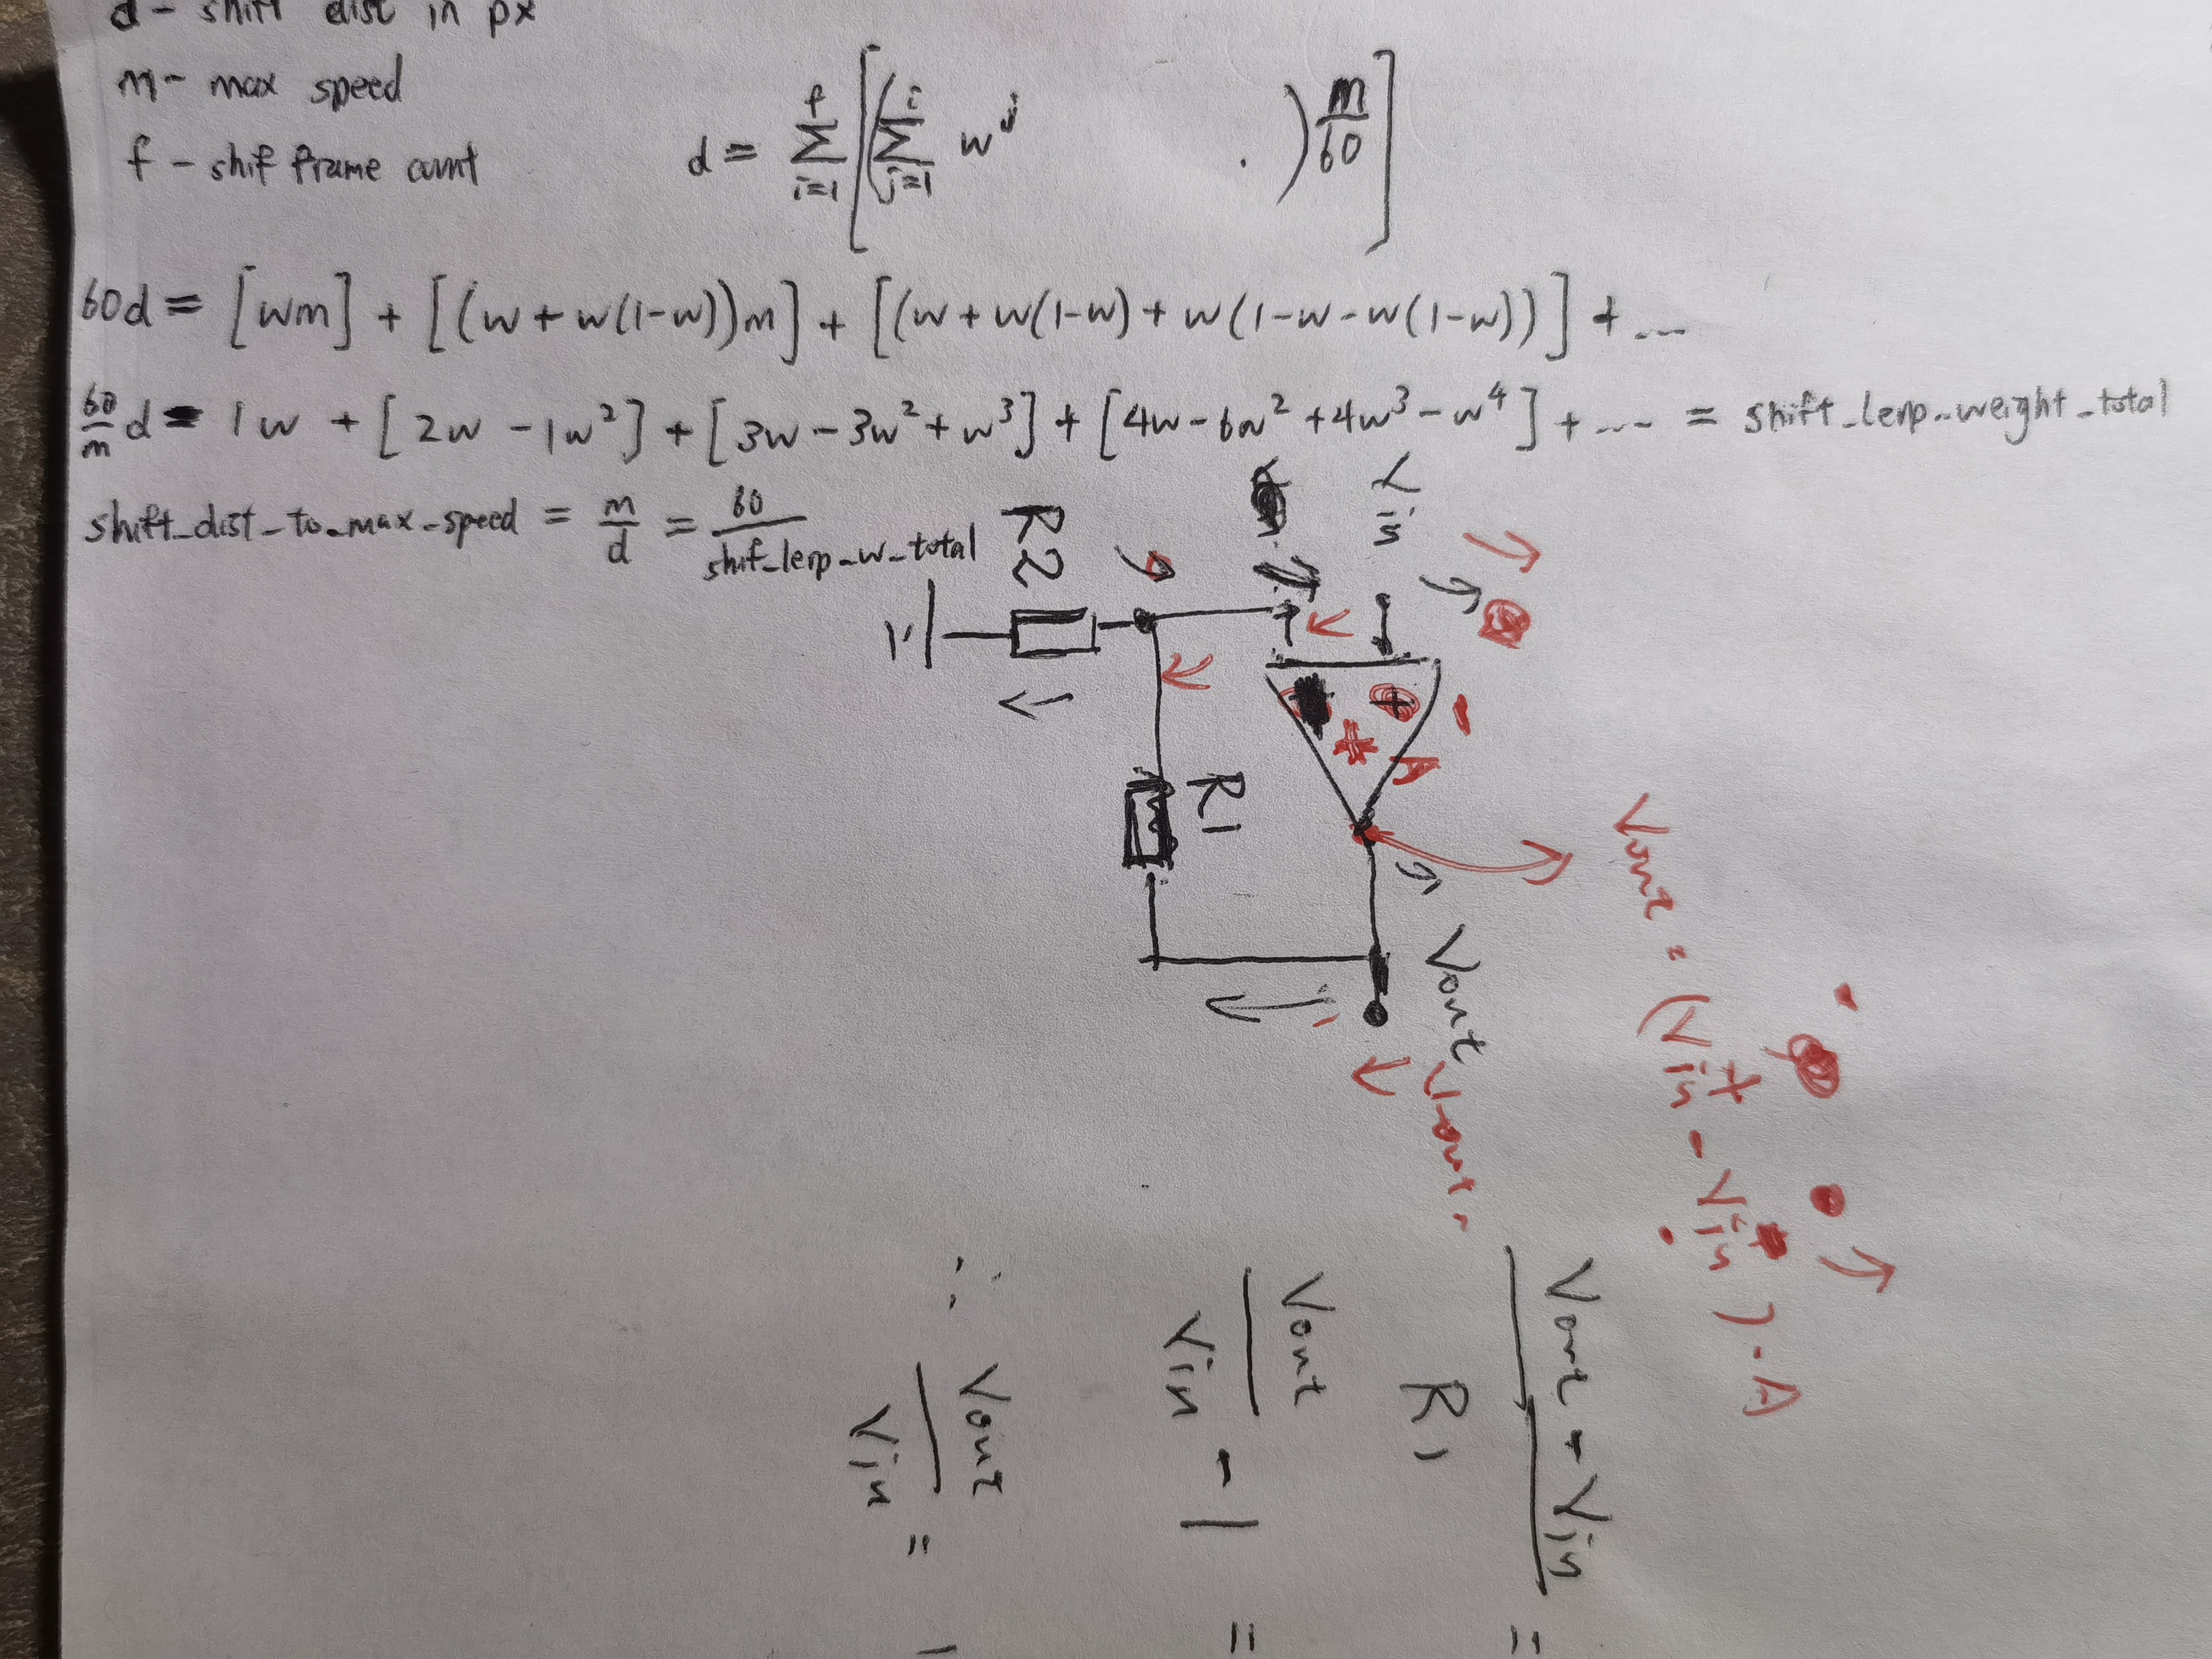 d - shift dist in px
m - max speed
f - shif frame count
d = Σ_{i=1}^{f} [(Σ_{j=1}^{i} w^j . ) m/60]
60d = [wm] + [(w + w(1-w))m] + [(w + w(1-w) + w(1-w-w(1-w))] + ...
60/m d = 1w + [2w - 1w² ] + [3w - 3w² + w³] + [4w - 6w² + 4w³ - w⁴ ] + ... = shift_lerp_weight_total
shift_dist_to_max_speed = m/d = 60/shif_lerp_w_total
R2
+
A
R1
Vout
Vout = (Vin+ - Vin ) . A
Vout - Vin
R1
=
Vout/Vin - 1 =
∴ Vout/Vin =